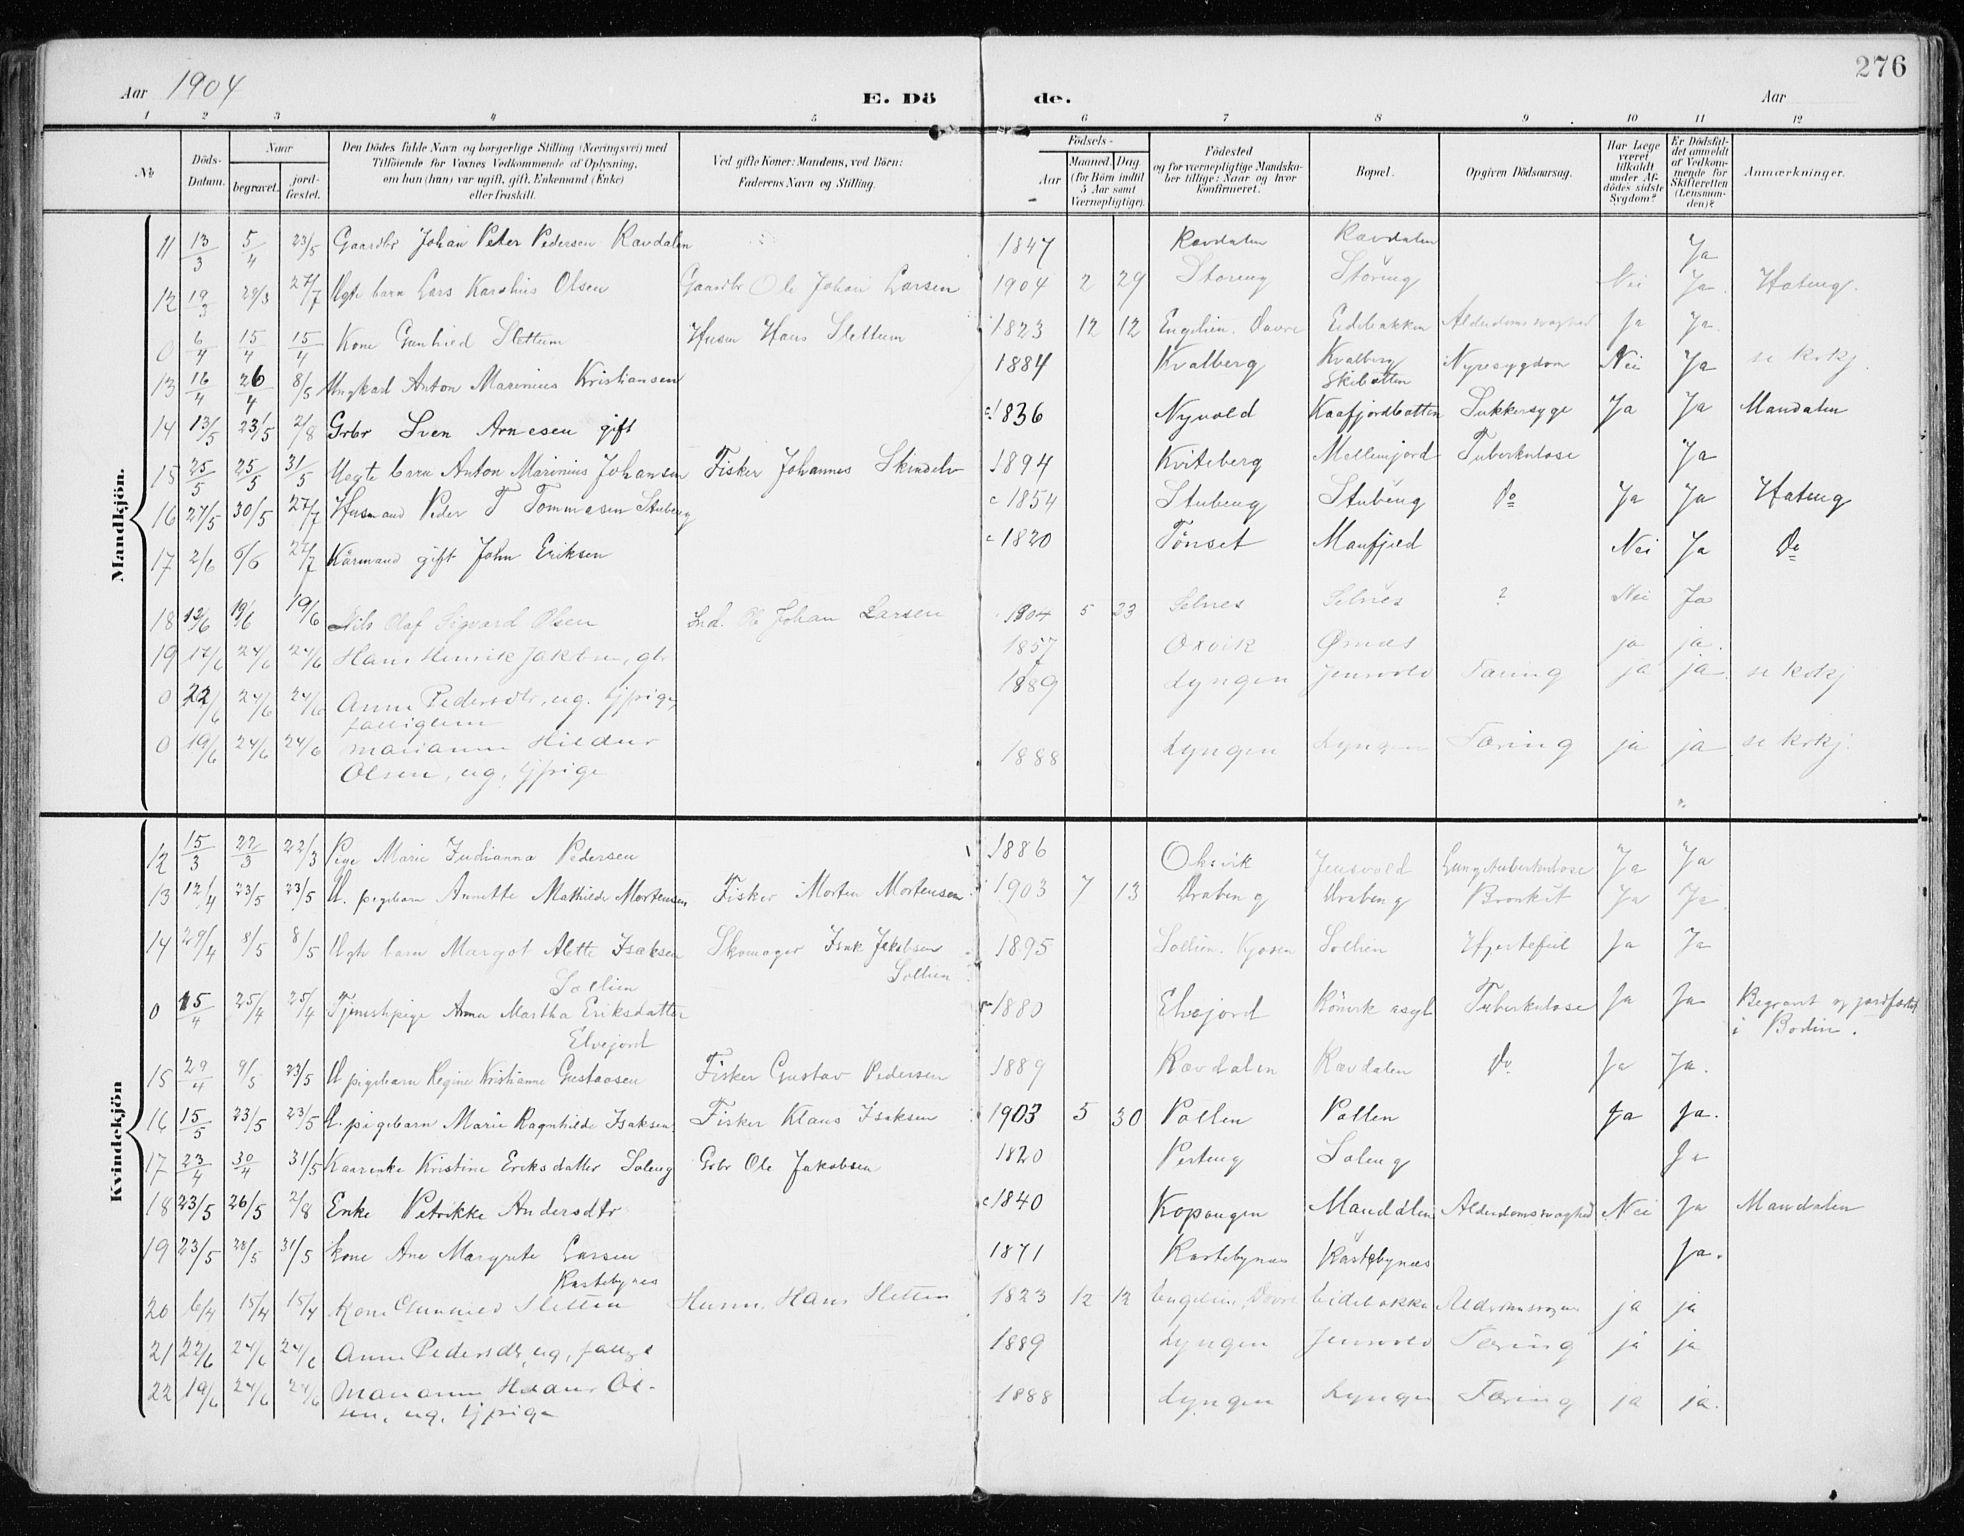 276
Aar 1904
E. Dö de.
Aar
1 2 3 4 5 6 7 8 9 10 11 12
No
Döds-Datum.
Naar
begravet.
jord-fæstet.
Den Dödes fulde Navn og borgerlige Stilling (Næringsvei) med
Tilföiende for Voxnes Vedkommende af Oplysning,
om han (hun) var ugift, gift, Enkemand (Enke)
eller fraskilt.
Ved gifte Koner: Mandens, ved Börn:
Faderens Navn og Stilling.
Födsels-
Aar
Maaned. Dag.
(for Börn indtil
5 Aar samt
Værnepligtige).
Födested
og for værnepligtige Mandska-
ber tillige: Naar og hvor
konfirmeret.
Bopæl.
Opgiven Dödsaarsag.
Har Læge
været
tilkaldt
under Af-
dödes sidste
Sygdom?
Er Dödsfal-
det anmeldt
af Vedkom-
mende for
Skifteretten
(Lensman-
den)?
Anmærkninger.
Mandkjön.
11 13/3 5/4 23/5 Gaardbr Johan Peter Pedersen Ravdalen 1847 Ravdalen Ravdalen Ja
12 19/3 29/3 27/7 Ugte barn Lars Karolius Olsen Gaardbr Ole Johan Larsen 1904 2 29 Storeng Storeng Nei Ja Hateng.
0 6/4 15/4 15/4 Kone Gunhied Slettum Husm Hans Slettum 1823 12 12 Engelien. Dovre Eidebakken Alderdomssvaghed Ja Ja.
13 16/4 26/4 8/5 Ungkarl Anton Marinius Kristiansen 1884 Kvalberg Kvalberg Skibotten Nyresygdom Nei Ja se krkj.
14 13/5 23/5 2/8 Grbr Sven Arnesen gift 1836 Nyvold Kaafjordbotten Sukkersyge Ja Ja Mandalen
15 25/5 25/5 31/5 Uegte barn Anton Marinius Johansen Fisker Johannes 1894 Kviteberg Mellemjord Tuberkulose Ja
16 27/5 30/5 27/7 Husmand Peder T Tommasen Stubeng 1854 Stubeng Stubeng Do Ja Ja Hateng
17 2/6 6/6 27/7 Kårmand gift John Eriksen 1820 Tønset Manfjeld Nei Ja Do
18 12/6 19/6 19/6 Nils Olaf Sigvard Olsen Ind. Ole Johan Larsen 1904 5 23 Selnes Selnes ? Nei Ja
19 17/6 24/6 24/6 Hans Henrik Jakobsen, gbr 1857 Oxvik Ørnæs ja ja.
0 22/6 24/6 24/6 Anne Pedersdtr, ug. tjpige, 1889 Lyngen Jensvold Tæring ja ja se krkj
fattiglem
0 19/6 24/6 24/6 Marianne Hildur 1888 Lyngen Lyngen Tæring ja ja se krkj.
Olsen, ug, tjpige
Kvindekjön
12 15/3 22/3 22/3 Pige Marie Indianna Pedersen 1886 Oksvik Jensvold Lungetuberkulose Ja Ja
13 12/4 23/5 23/5 U. pigebarn Annette Mathilde Mortensen Fisker Morten Mortensen 1903 7 13 Drabeng Drabeng Bronkit Ja Ja.
14 29/4 8/5 8/5 Ugte barn Margot Alette Isaksen Skomager Isak Jakobsen 1895 Sollien. Kjosen Sollien Hjertefeil Ja Ja
Sollien Sollien
0 15/4 25/4 25/4 Tjenestpige Anna Martha Eriksdatter 1880 Elvejord Rönvik asyl Tuberkulose Ja Ja Begravet og jordfæstet
Elvejord i Bodin.
15 29/4 9/5 23/5 U pigebarn Regine Kristianne Gustavsen Fisker Gustav Pedersen 1889 Ravdalen Ravdalen Do Ja Ja.
16 15/5 23/5 23/5 U. pigebarn Marie Ragnhilde Isaksen Fisker Klaus Isaksen 1903 5 30 Pollen Pollen Ja Ja.
17 23/4 30/4 31/5 Kaarenke Kristine Eriksdatter Soleng Grbr Ole Jakobsen 1820 Perteng Soleng Ja
18 23/5 26/5 2/8 Enke Petrikke Andersdtr 1840 Kopangen Manddlen Alderdomssvaghed Nei Ja Mandalen
19 23/5 28/5 31/5 Kone Ane Margrete Larsen 1871 Rastebynæs Rastebynæs Ja.
Rastebynes
20 6/4 15/4 15/4 Kone Gunhild Sletten Husm. Hans Sletten 1823 12 12 Engelien, Dovre Eidebakke ja ja
21 22/6 24/6 24/6 Anne Pedersdtr, ug, 1889 Lyngen Jensvold Tæring ja ja
22 19/6 24/6 24/6 Marianne Hildur Ol- 1888 Lyngen Lyngen Tæring ja ja.
sen, ug, tjpige